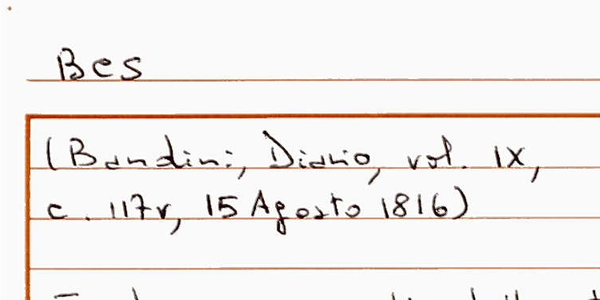 Bes
(Bandini, Diario, vol. IX,
c. 117r, 15 Agosto 1816)